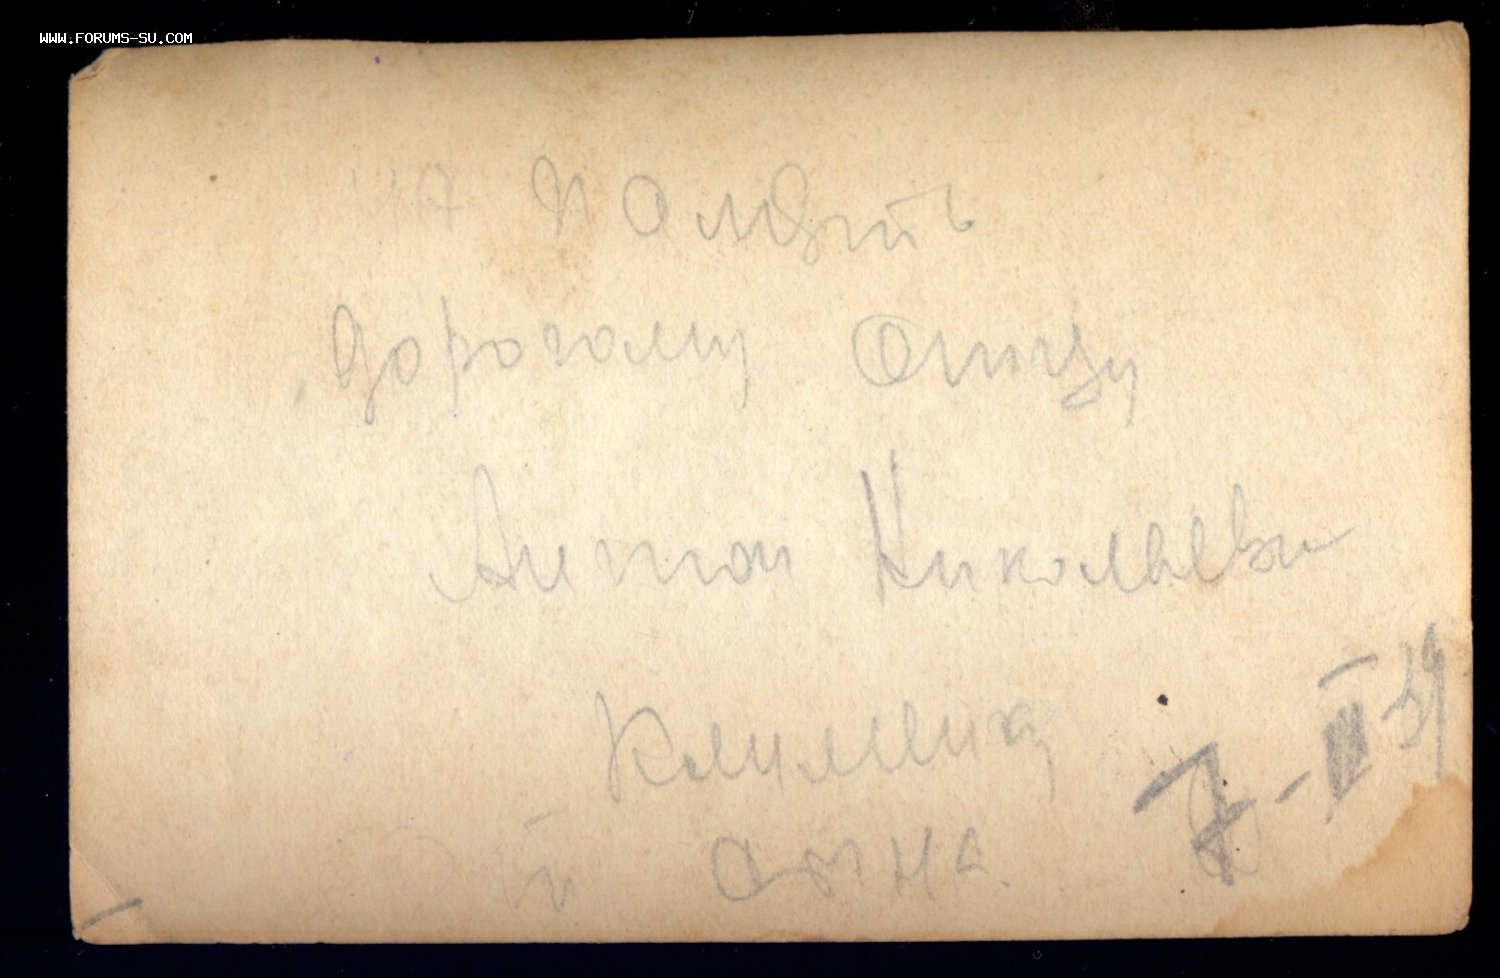 WWW.FORUMS-SU.COM
на память
дорогому отцу
Антон Николаеви
от сына
7-III-39